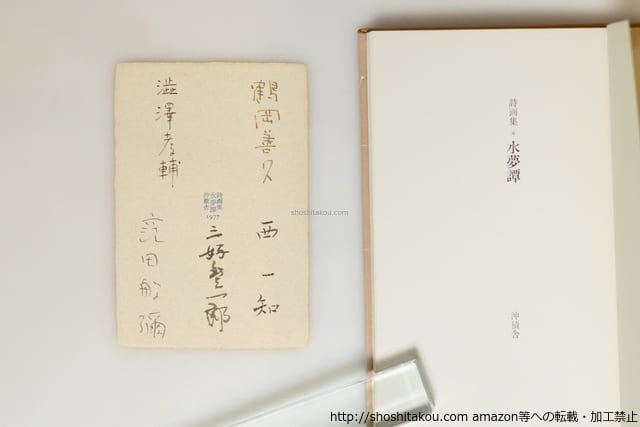 鶴岡善久
西一知
詩画集
水夢譚
沖積舎
1977
三好豊一郎
澁澤孝輔
窪田般彌
shoshitakou.com
詩画集 * 水夢譚
沖積舎
http://shoshitakou.com amazon等への転載・加工禁止